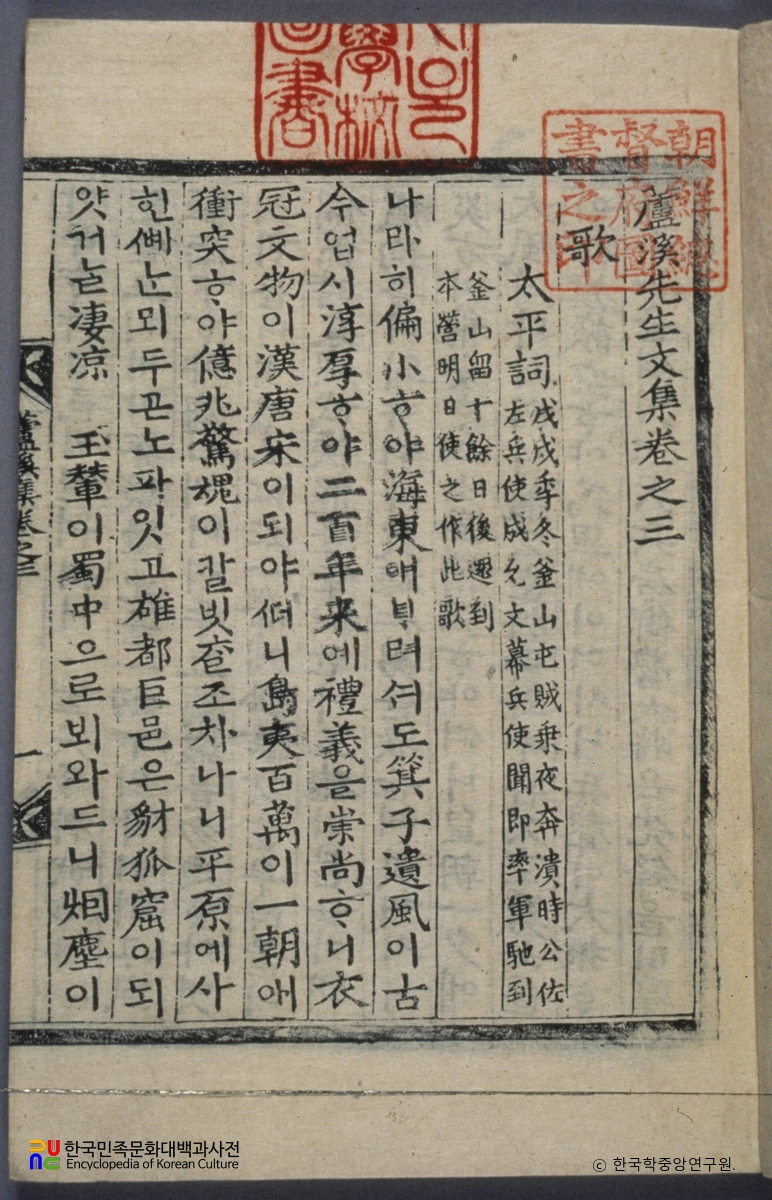 蘆溪先生文集卷之三
歌
太平詞 戊戌季冬釜山屯賊乗夜奔潰時公佐
左兵使成允文幕兵使聞即率軍馳到
釜山留十餘日後還到
本營明日使之作此歌
나라히偏小ᄒᆞ야海東애ᄇᆞ려셔도箕子遺風이古
今업시淳厚ᄒᆞ야二百年来예禮義을崇尚ᄒᆞ니衣
冠文物이漢唐宋이되야ᄯᅥ니島夷百萬이一朝애
衝突ᄒᆞ야億兆驚魂이칼빗ᄎᆞᆯ조차나니平原에사
힌ᄲᅧᄂᆞᆫ뫼두곤노파잇고雄都巨邑은豺狐窟이되
얏거ᄂᆞᆯ凄凉 玉輦이蜀中으로뵈와드니烟塵이
蘆溪集卷之三 一
朝鮮總
督府圖
書之印
學校
圖書
한국민족문화대백과사전
Encyclopedia of Korean Culture
© 한국학중앙연구원.